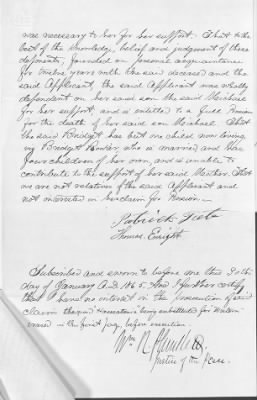 was necessary to her for her support. That to the
best of the knowledge, belief and judgment of these
deponents, founded on personal acquaintance
for twelve years with the said deceased and the
said Applicant, the said Applicant was wholly
dependent on her said son the said Michael
for her support, and is entitled to a full Pension
for the death of her said son Michael. That
the said Bridget has but one child now living
Bridget Bower, who is married and has
four children of her own, and is unable to
contribute to the support of her said Mother. That
we are not relatives of the said Applicant and
not interested in her claim for Pension.
Patrick
Thomas Enright
Subscribed and sworn to before me this 30th
day of January A.D. 1865. And I further certify
that I have no interest in the prosecution of said
claim
in the first page, before execution.
Wm R
Justice of the Peace